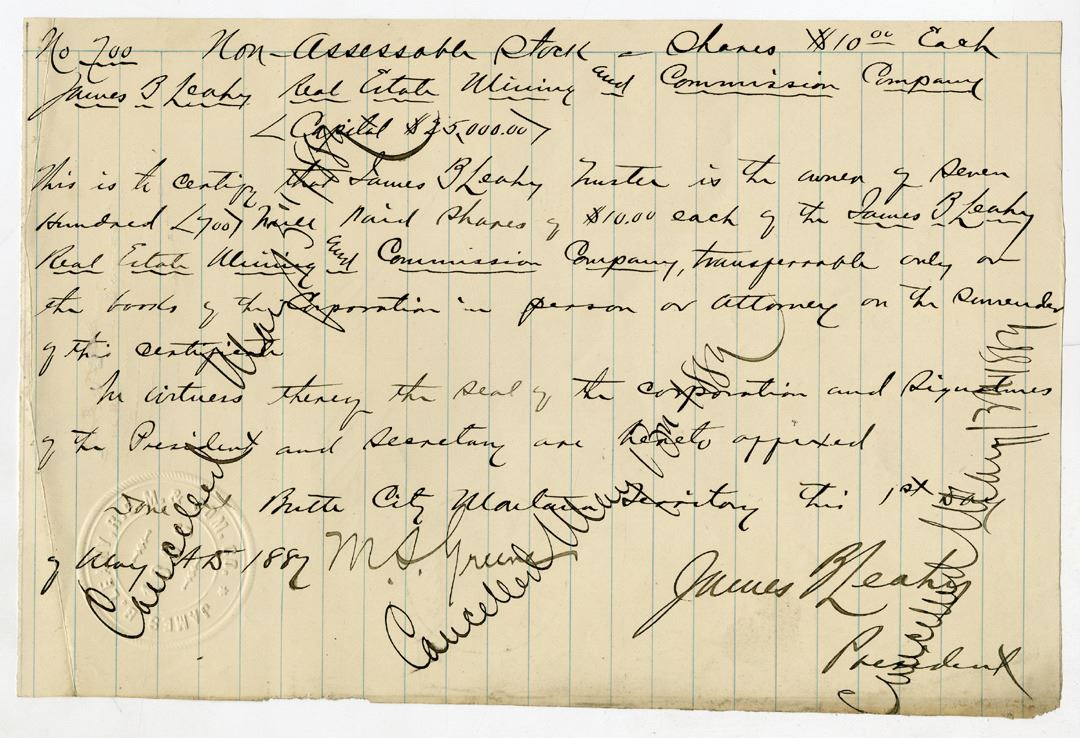 No 700 Non-Assessable Stock - Shares $10.00 Each
James B Leahy Real Estate Mining and Commission Company
(Capital $25,000.00)
This is to certify that James B Leahy Trustee is the owner of seven
Hundred (700) Paid shares of $10.00 each of the James B Leahy
Real Estate Mining and Commission Company, transferrable only on
the books of the Corporation in person or attorney on the surrender
of this certificate
In witness thereof the seal of the corporation and signatures
of the President and Secretary are hereto affixed
Done at Butte City Montana Territory this 1st Day
of May A D 1887 M. S. Greene
James B Leahy
President
Cancelled May 13th 1887
Cancelled May 13th 1887
Cancelled May 13th 1887